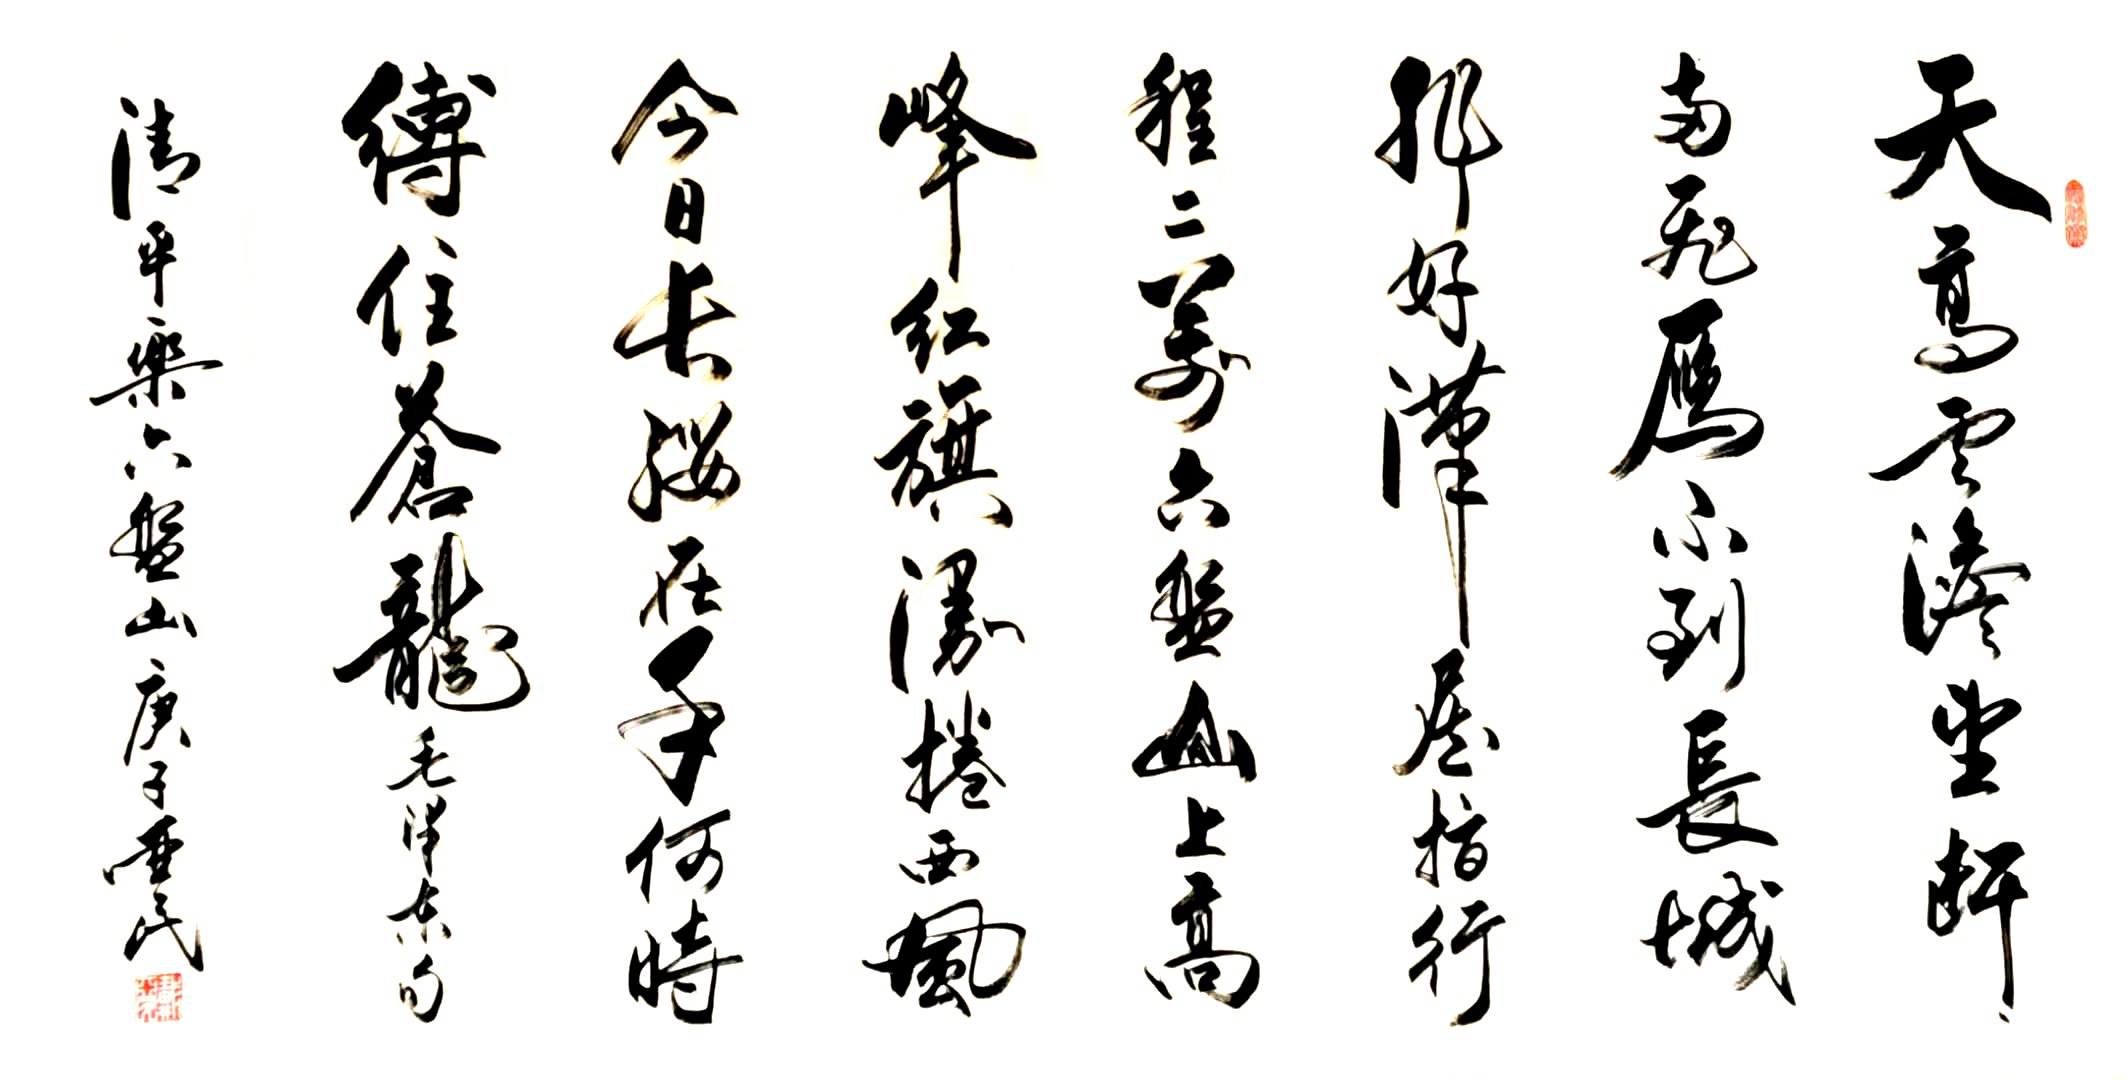 天高云澹望断
南飛鴈不到長城
非好漢屈指行
程二萬六盤山上高
峰红旗漫捲西風
今日长缨在手何時
縛住蒼龍毛澤东句
清平樂六盤山庚子亜民